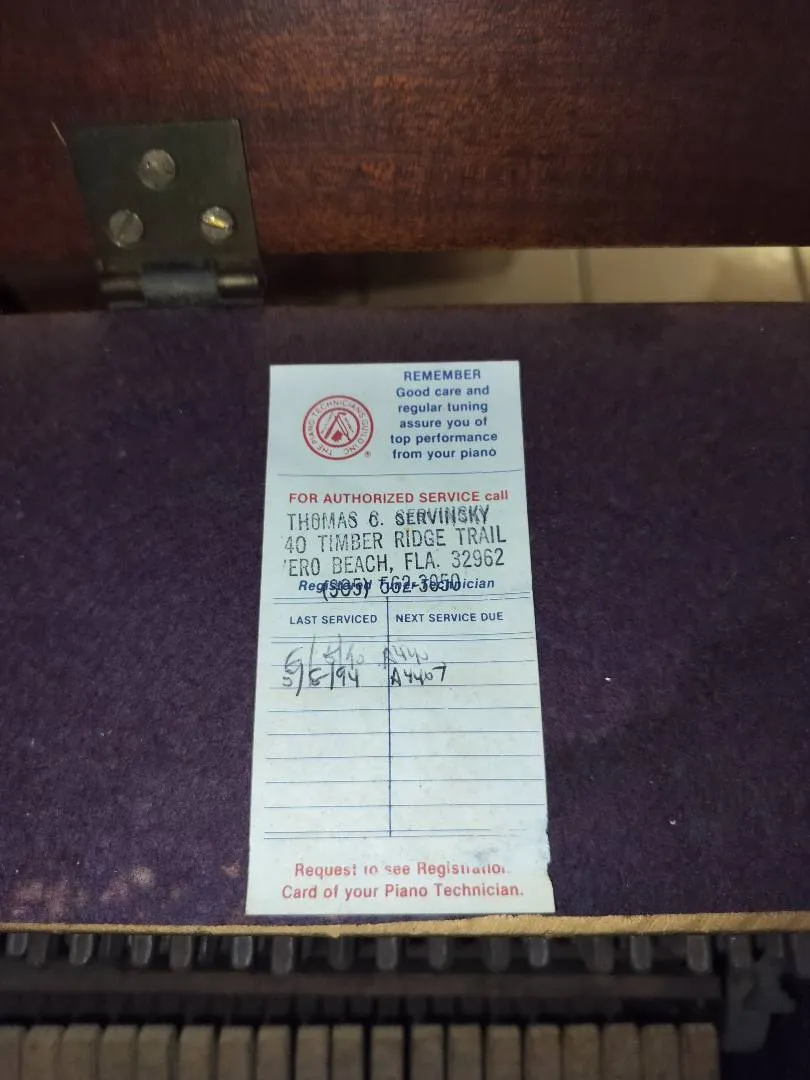 REMEMBER
Good care and
regular tuning
assure you of
top performance
from your piano
THE PIANO TECHNICIANS GUILD INC
®
FOR AUTHORIZED SERVICE call
THOMAS C. SERVINSKY
40 TIMBER RIDGE TRAIL
ERO BEACH, FLA. 32962
Registered Tuner-Technician
(305) 562-3050
LAST SERVICED NEXT SERVICE DUE
A440
5/5/94 A440
Request to see Registration
Card of your Piano Technician.